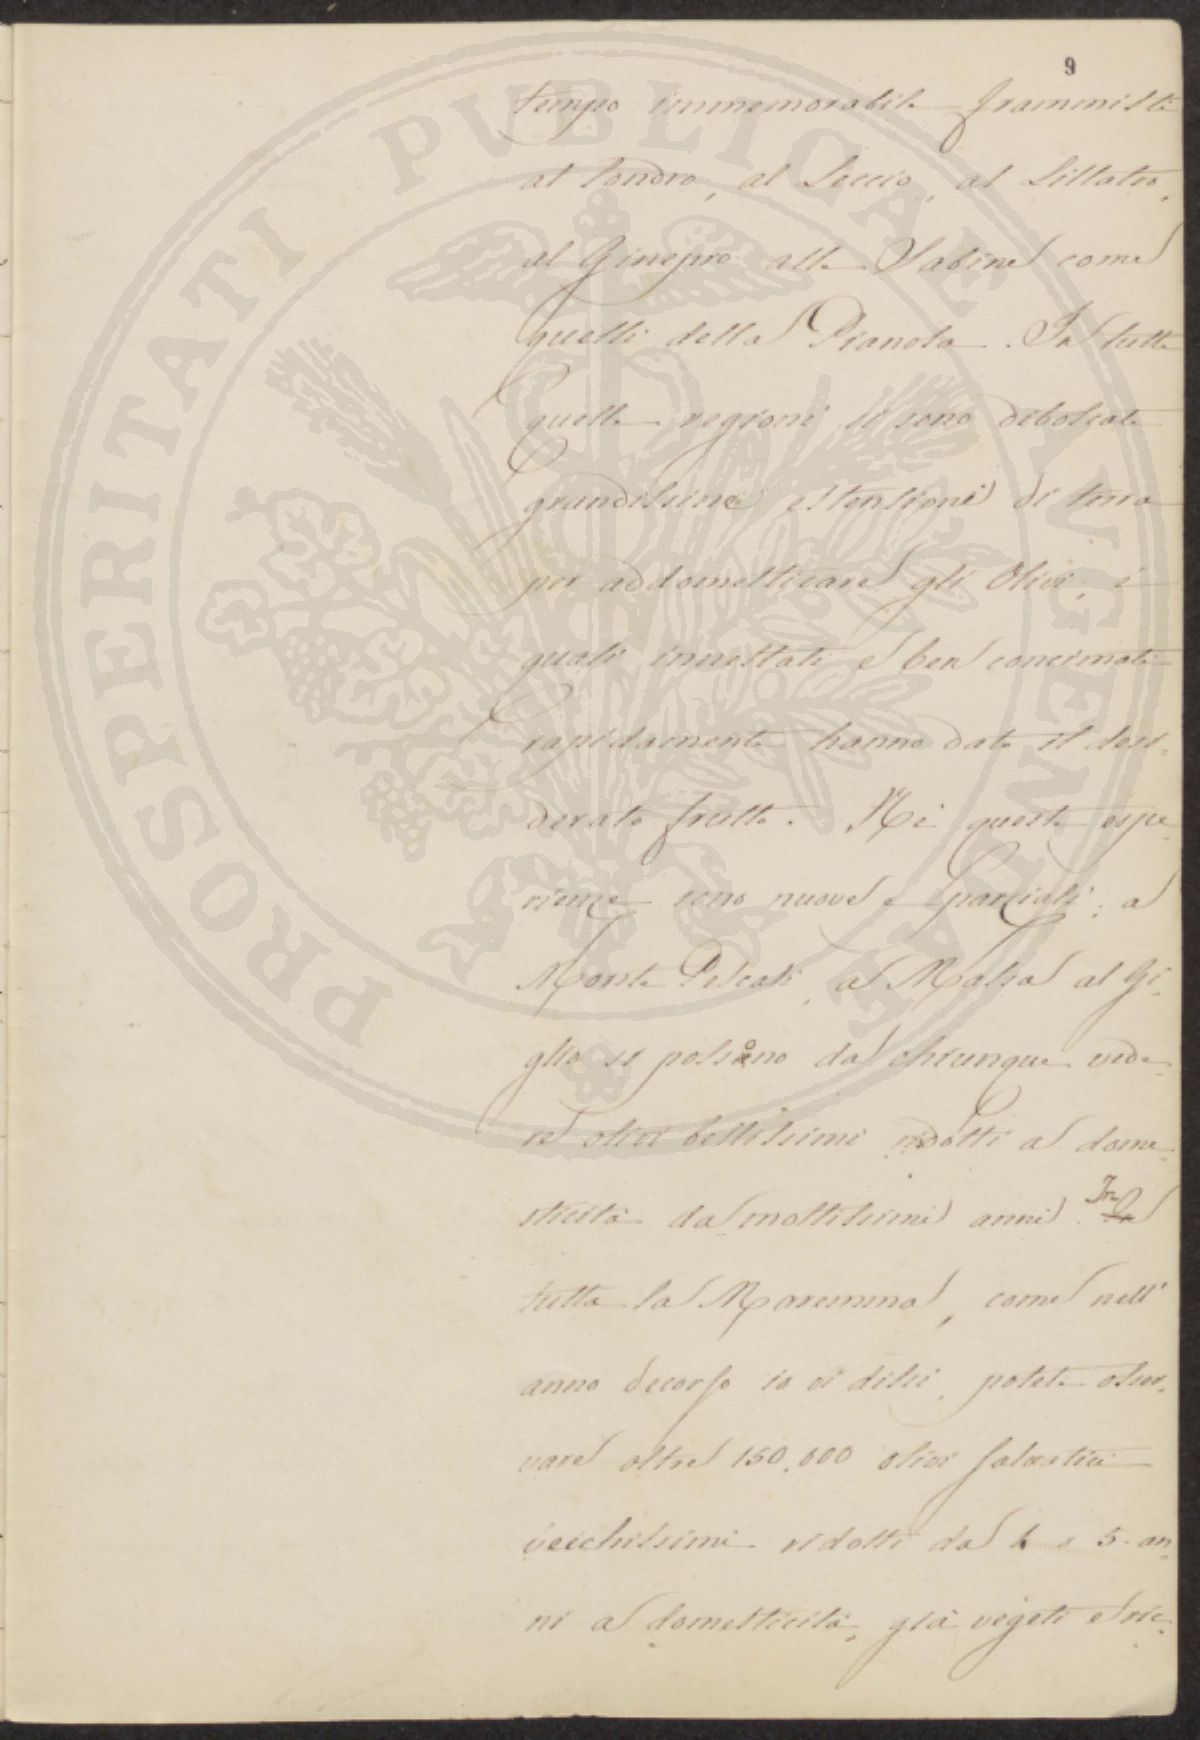 9
tempo immemorabile frammisti
al Tondro, al Leccio, al Lillatro,
al Ginepro alle Sabine come
quelli della Pianola. In tutte
quelle regioni si sono diboscate
grandissime estensioni di terra
per addomesticare gli Olivi, i
quali innestati e ben concimati
rapidamente hanno dato il desi-
derato frutto. Nè queste espe-
rienze sono nuove e parziali; a
Monte Pescali, a Massa al Gi-
glio si possono da chiunque vede-
re olivi bellissimi ridotti a dome-
sticità da moltissimi anni. In
tutta la Maremma, come nell'
anno decorso io vi dissi, potete osser-
vare oltre 150.000 olivi salvatici
vecchissimi ridotti da 4 o 5 an
ni a domesticità, già vegeti e ric-
PROSPERITATI PUBLICAE AVGENDAE